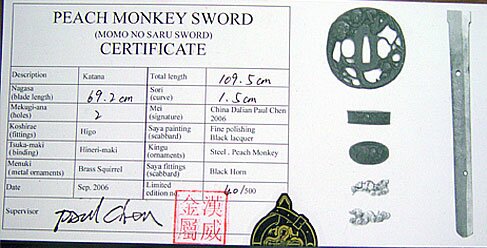 PEACH MONKEY SWORD
(MOMO NO SARU SWORD)
CERTIFICATE
Description Katana Total length 109.5cm
Nagasa (blade length) 69.2cm Sori (curve) 1.5cm
Mekugi-ana (holes) 2 Mei (signature) China Dalian Paul Chen 2006
Koshirae (fittings) Higo Saya painting (scabbard) Fine polishing Black lacquer
Tsuka-maki (binding) Hineri-maki Kingu (ornaments) Steel . Peach Monkey
Menuki (metal ornaments) Brass Squirrel Saya fittings (scabbard) Black Horn
Date Sep. 2006 Limited edition no 401/500
Supervisor Paul Chen
漢威
金屬